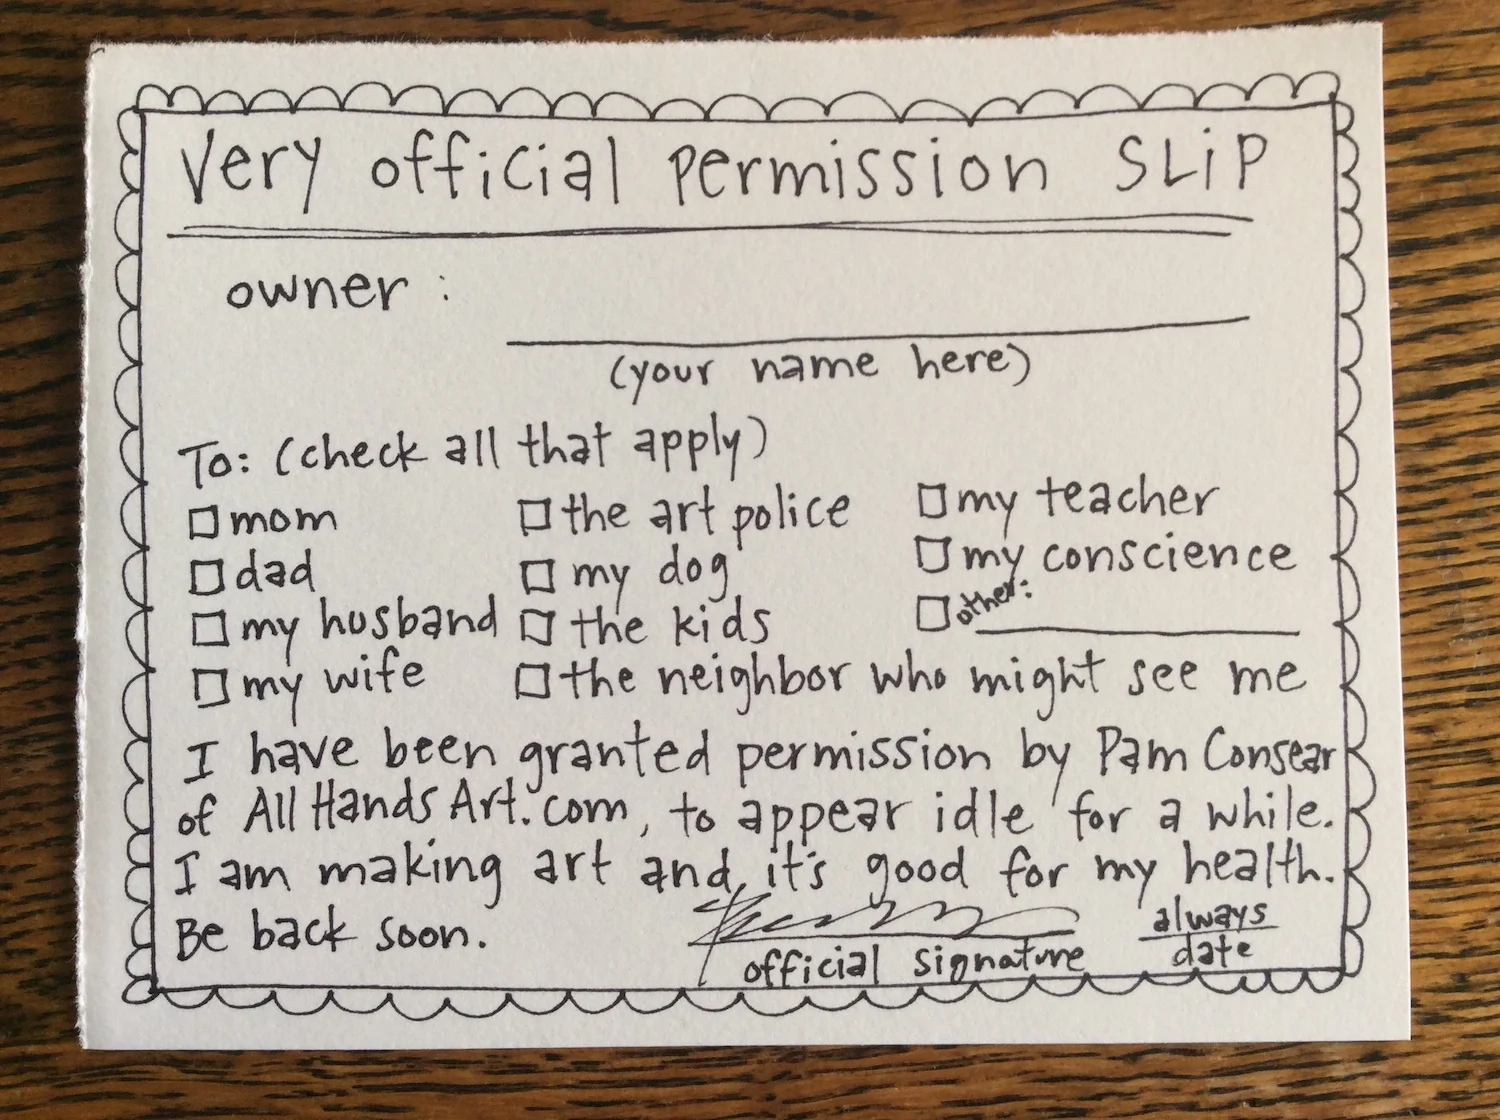 Very official permission SLiP
owner:
(your name here)
To: (check all that apply)
mom
dad
my husband
my wife
the art police
my dog
the kids
the neighbor who might see me
my teacher
my conscience
other:
I have been granted permission by Pam Consear
of All Hands Art.com, to appear idle for a while.
I am making art and it's good for my health.
Be back soon.
official signature
always
date